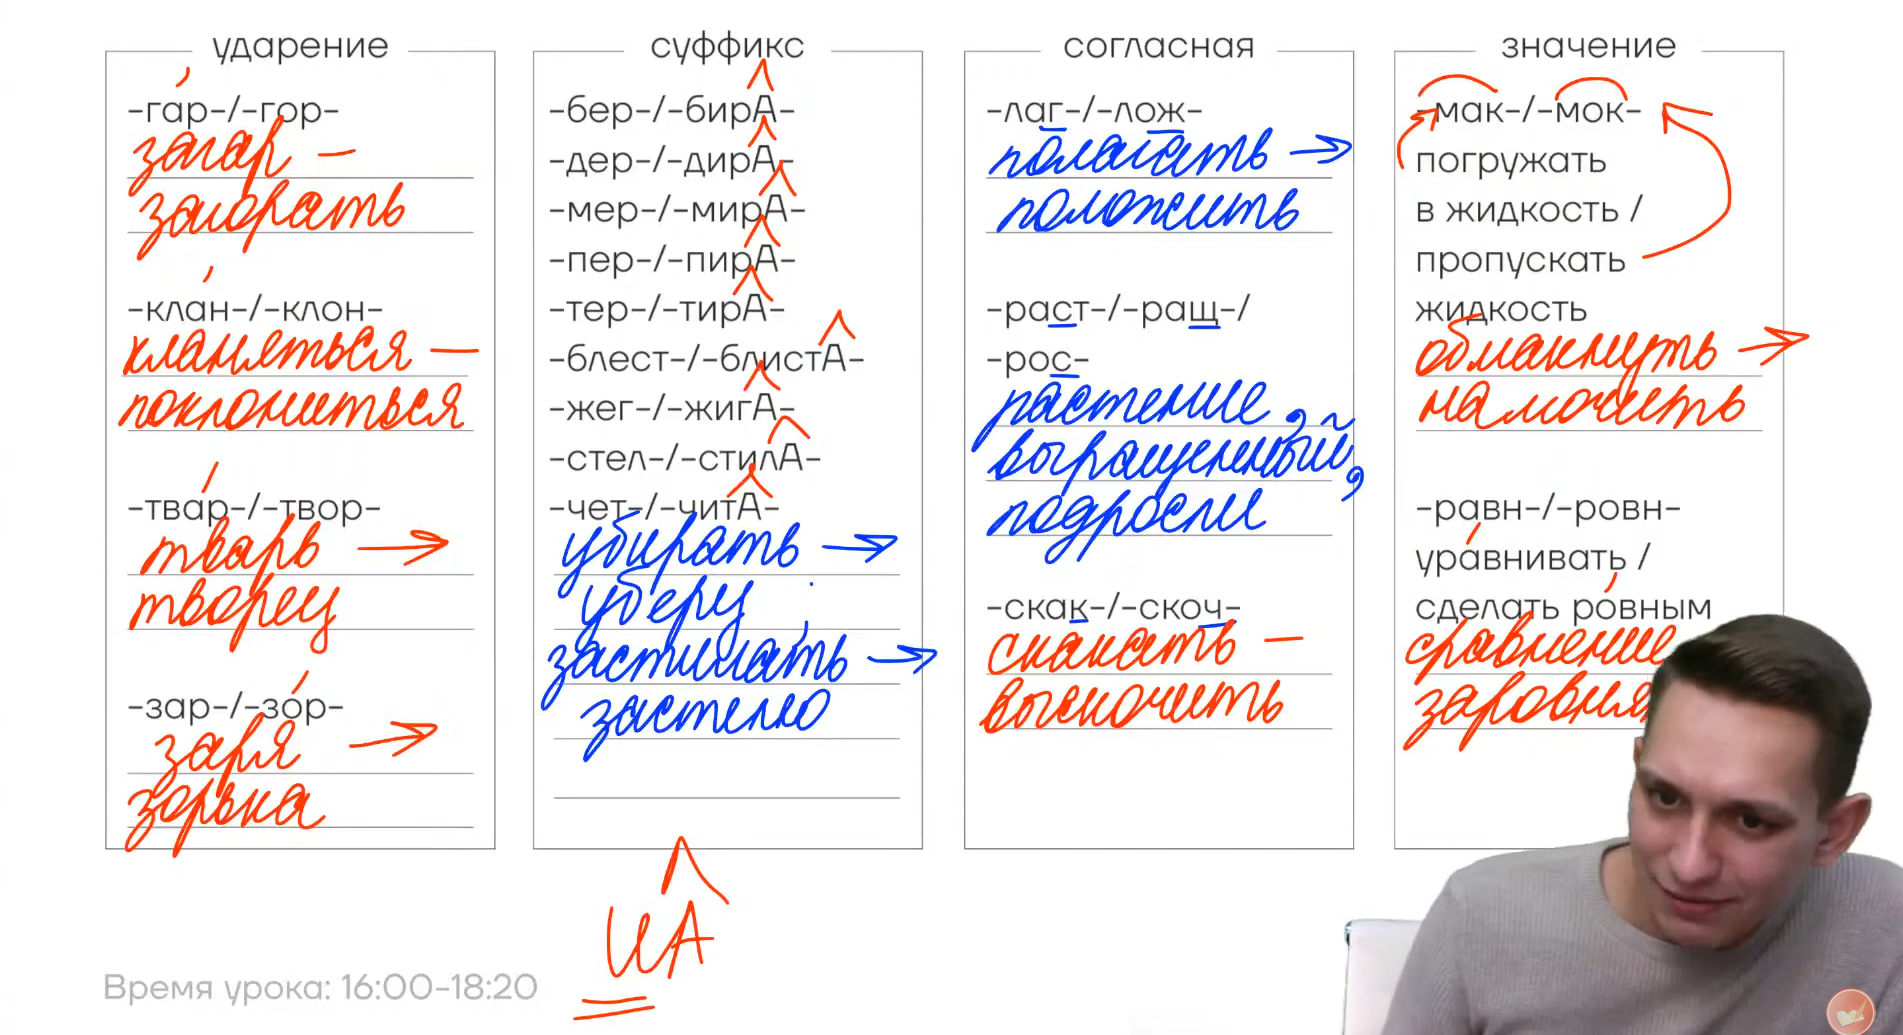 ударение
-гар-/-гор-
загар –
загорать
-клан-/-клон-
кланяться –
поклониться
-твар-/-твор-
тварь →
творец
-зар-/-зор-
заря →
зорька
суффикс
-бер-/-бирА-
-дер-/-дирА-
-мер-/-мирА-
-пер-/-пирА-
-тер-/-тирА-
-блест-/-блистА-
-жег-/-жигА-
-стел-/-стилА-
-чет-/-читА-
убирать →
уберу
застилать →
застелю
иА
согласная
-лаг-/-лож-
полагать →
положить
-раст-/-ращ-/
-рос-
растение,
выращенный,
подросли
-скак-/-скоч-
скакать –
выскочить
значение
-мак-/-мок-
погружать
в жидкость /
пропускать
жидкость
обмакнуть →
намочить
-равн-/-ровн-
уравнивать /
сделать ровным
сравнение
Время урока: 16:00-18:20